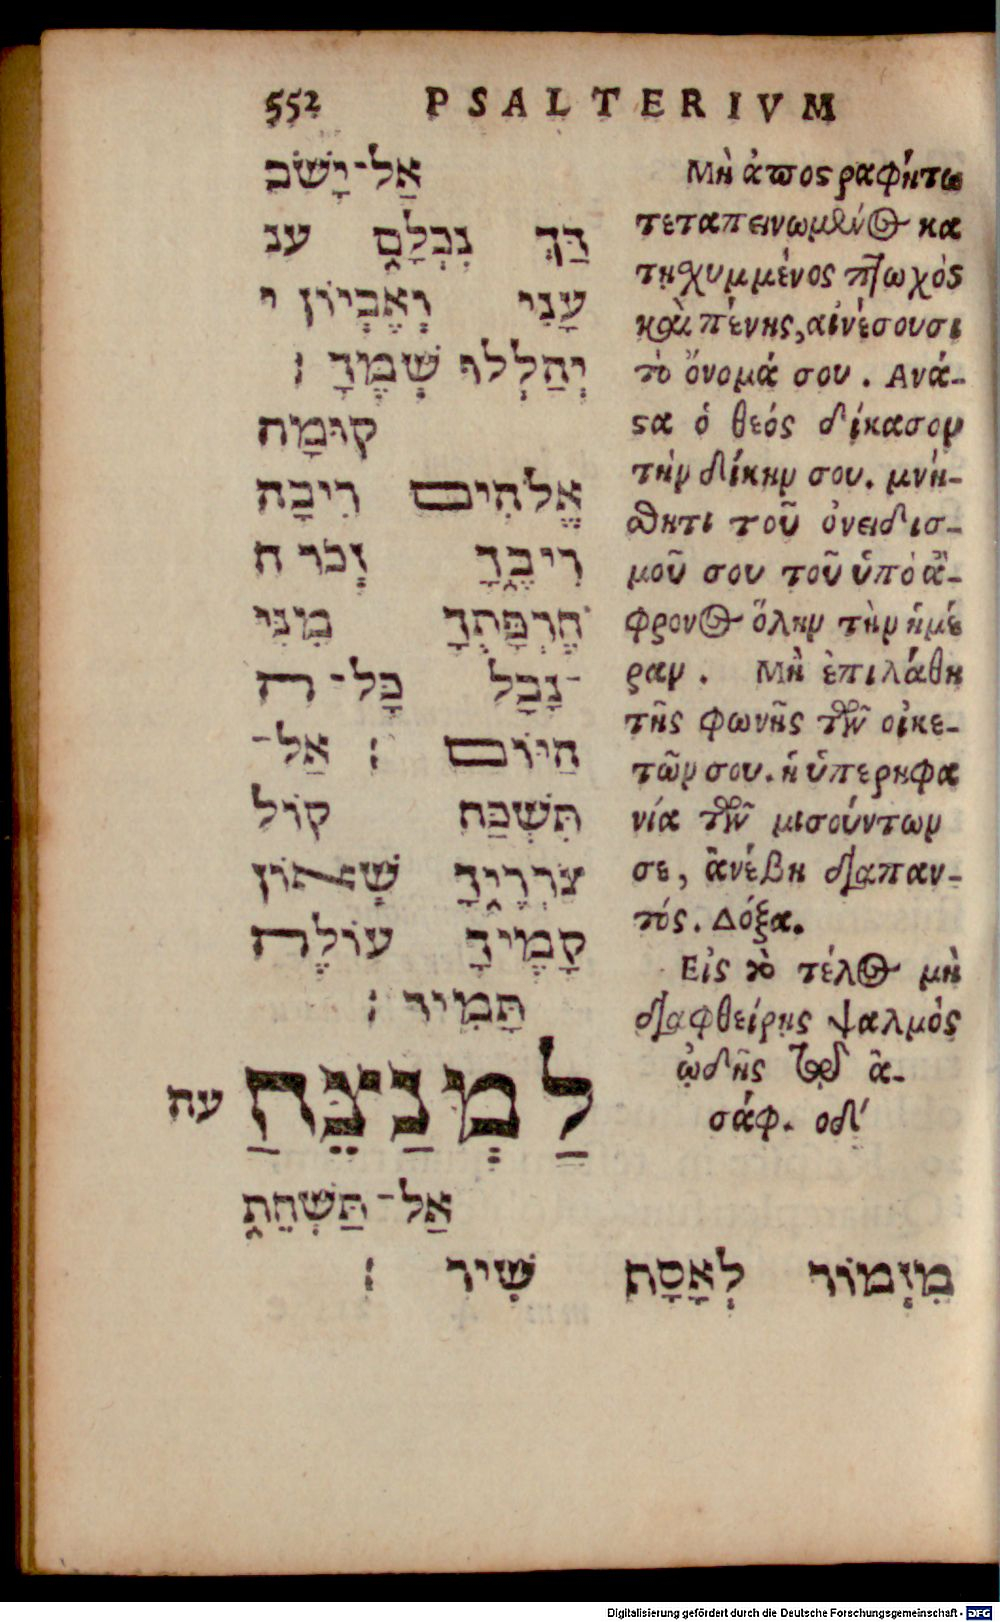 552 PSALTERIVM
אַל־יָשֹׁב
דַּךְ נִכְלָם עני
עָנִי וְאֶבְיוֹן י
יְהַלְלוּ שְׁמֶךָ ׃
קוּמָה
אֱלֹהִים רִיבָה
רִיבֶךָ זְכֹר ח
חֶרְפָּתְךָ מִנִּי
־נָבָל כָּל־ה
הַיּוֹם ׃ אַל־
תִּשְׁכַּח קוֹל
צֹרְרֶיךָ שְׁאוֹן
קָמֶיךָ עוֹלֶה
תָּמִיד ׃
לַמְנַצֵּחַ עה
אַל־תַּשְׁחֵת
מִזְמוֹר לְאָסָף שִׁיר ׃
Μὴ ἀποστραφήτω
τεταπεινωμένος κα
τῃσχυμμένος πτωχὸς
καὶ πένης, αἰνέσουσι
τὸ ὄνομά σου. Ανά-
στα ὁ θεός δίκασον
τὴν δίκην σου. μνή-
σθητι τοῦ ὀνειδισ-
μοῦ σου τοῦ ὑπὸ ἄ-
φρονος ὅλην τὴν ἡμέ
ραν. Μὴ ἐπιλάθη
τῆς φωνῆς τῶν οἰκε-
τῶν σου. ἡ ὑπερηφα
νία τῶν μισούντων
σε, ἀνέβη διαπαν-
τός. Δόξα.
Εἰς τὸ τέλος μὴ
διαφθείρῃς ψαλμὸς
ᾠδῆς τῷ ἀ-
σάφ. οδ'
Digitalisierung gefördert durch die Deutsche Forschungsgemeinschaft - DFG